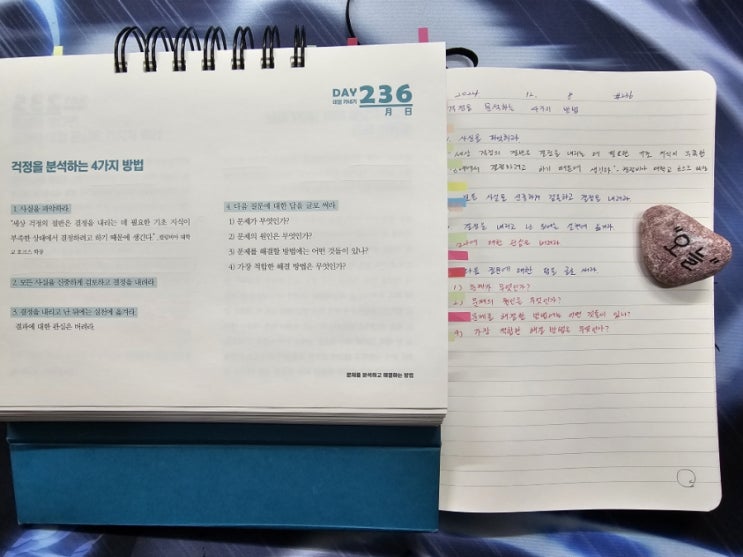 DAY 236
月 日
걱정을 분석하는 4가지 방법
1. 사실을 파악하라
"세상 걱정의 절반은 결정을 내리는 데 필요한 기초 지식이
부족한 상태에서 결정하려고 하기 때문에 생긴다." 컬럼비아 대학
교 호크스 학장
2. 모든 사실을 신중하게 검토하고 결정을 내려라
3. 결정을 내리고 난 뒤에는 실천에 옮겨라
결과에 대한 관심은 버려라
4. 다음 질문에 대한 답을 글로 써라
1) 문제가 무엇인가?
2) 문제의 원인은 무엇인가?
3) 문제를 해결할 방법에는 어떤 것들이 있나?
4) 가장 적합한 해결 방법은 무엇인가?
문제를 분석하고 해결하는 방법
2024 12. 8 #236
걱정을 분석하는 4가지 방법
사실을 파악하라
세상 걱정의 절반은 결정을 내리는 데 필요한 기초 지식이 부족한
에서 결정하려고 하기 때문에 생긴다". 컬럼비아 대학교 호크스 학장
모든 사실을 신중하게 검토하고 결정을 내려라
결정을 내리고 난 뒤에는 실천에 옮겨라
에 대한 관심은 버려라
다음 질문에 대한 답을 글로 써라
1) 문제가 무엇인가?
2) 문제의 원인은 무엇인가?
문제를 해결할 방법에는 어떤 것들이 있나?
4) 가장 적합한 해결 방법은 무엇인가?
"오늘"